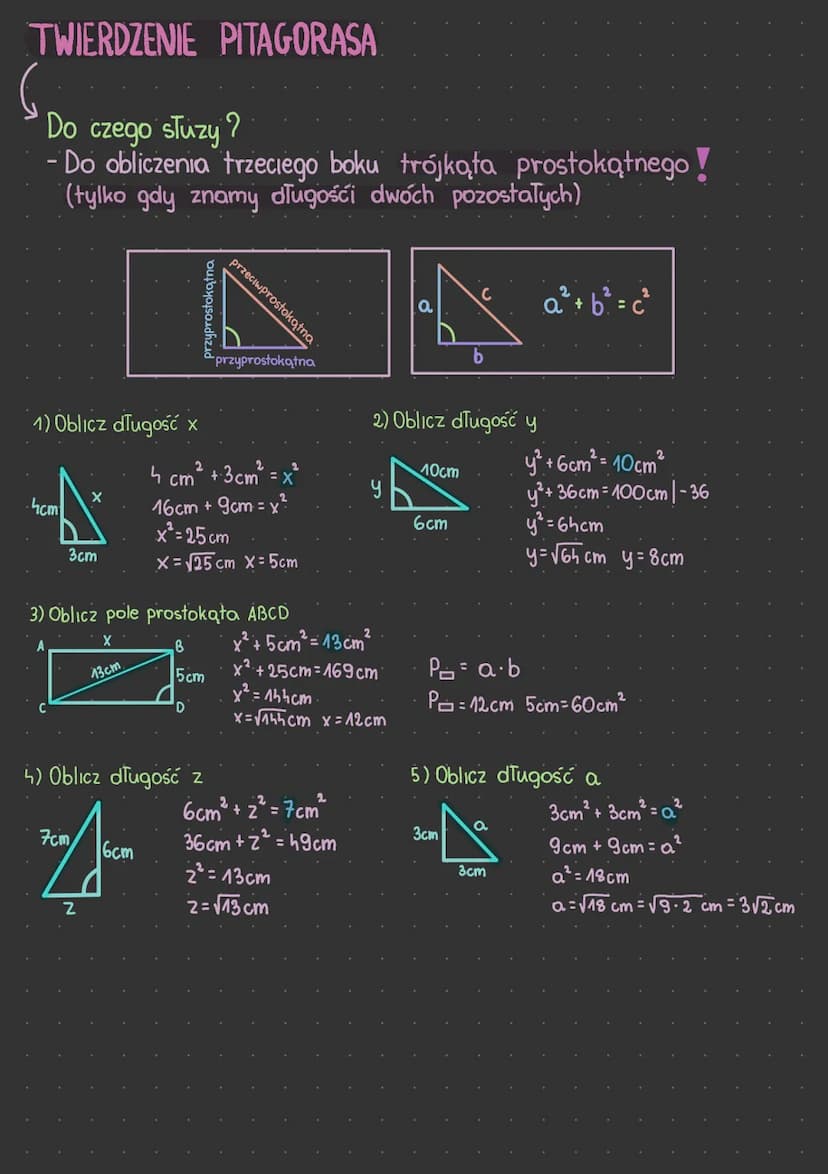 TWIERDZENIE PITAGORASA
Do czego służy?
- Do obliczenia trzeciego boku trójkąta prostokątnego!
(tylko gdy znamy długości dwóch pozostałych)
przyprostokątna
przeciwprostokątna
przyprostokątna
a
c
b
a² + b² = c²
1) Oblicz długość x
4cm
x
3cm
4 cm² + 3cm² = x²
16cm + 9cm = x²
x² = 25cm
x = √25 cm x = 5cm
2) Oblicz długość y
y
10cm
6cm
y² + 6cm² = 10cm²
y² + 36cm = 100cm | - 36
y² = 64cm
y = √64 cm y = 8cm
3) Oblicz pole prostokąta ABCD
A
x
B
13cm
5cm
C
D
x² + 5cm² = 13cm²
x² + 25cm = 169cm
x² = 144cm
x = √144 cm x = 12cm
P▭ = a·b
P▭ = 12cm 5cm = 60cm²
4) Oblicz długość z
7cm
6cm
z
6cm² + z² = 7cm²
36cm + z² = 49cm
z² = 13cm
z = √13 cm
5) Oblicz długość a
3cm
a
3cm
3cm² + 3cm² = a²
9cm + 9cm = a²
a² = 18cm
a = √18 cm = √9·2 cm = 3√2 cm